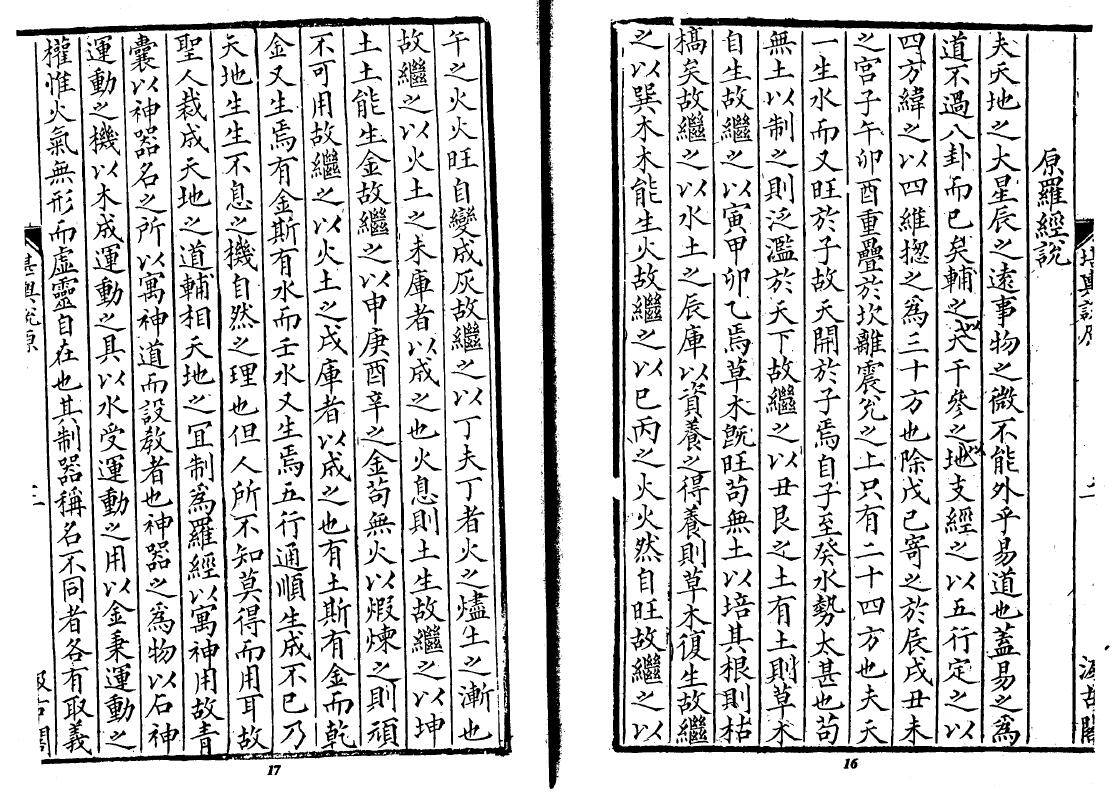 原羅經說
夫天地之大星辰之遠事物之微不能外乎易道也蓋易之為
道不過八卦而已矣輔之以天干參之以地支經之以五行定之以
四方緯之以四維揔之為三十方也除戊己寄之於辰戌丑未
之宮子午卯酉重疊於坎離震兌之上只有二十四方也夫天
一生水而又旺於子故天開於子焉自子至癸水勢太甚也苟
無土以制之則泛濫於天下故繼之以丑艮之土有土則草木
自生故繼之以寅甲卯乙焉草木旣旺苟無土以培其根則枯
槁矣故繼之以水土之辰庫以資養之得養則草木復生故繼
之以巽木木能生火故繼之以巳丙之火火然自旺故繼之以
16
午之火火旺自變成灰故繼之以丁夫丁者火之燼土之漸也
故繼之以火土之未庫者以成之也火息則土生故繼之以坤
土土能生金故繼之以申庚酉辛之金苟無火以煆煉之則頑
不可用故繼之以火土之戌庫者以成之也有土斯有金而乾
金又生焉有金斯有水而壬水又生焉五行通順生成不已乃
天地生生不息之機自然之理也但人所不知莫得而用耳故
聖人裁成天地之道輔相天地之宜制為羅經以寓神用故青
囊以神器名之所以寓神道而設教者也神器之為物以石神
運動之機以木成運動之具以水受運動之用以金秉運動之
權惟火氣無形而虛靈自在也其制器稱名不同者各有取義
堪輿說原
二
汲古閣
17